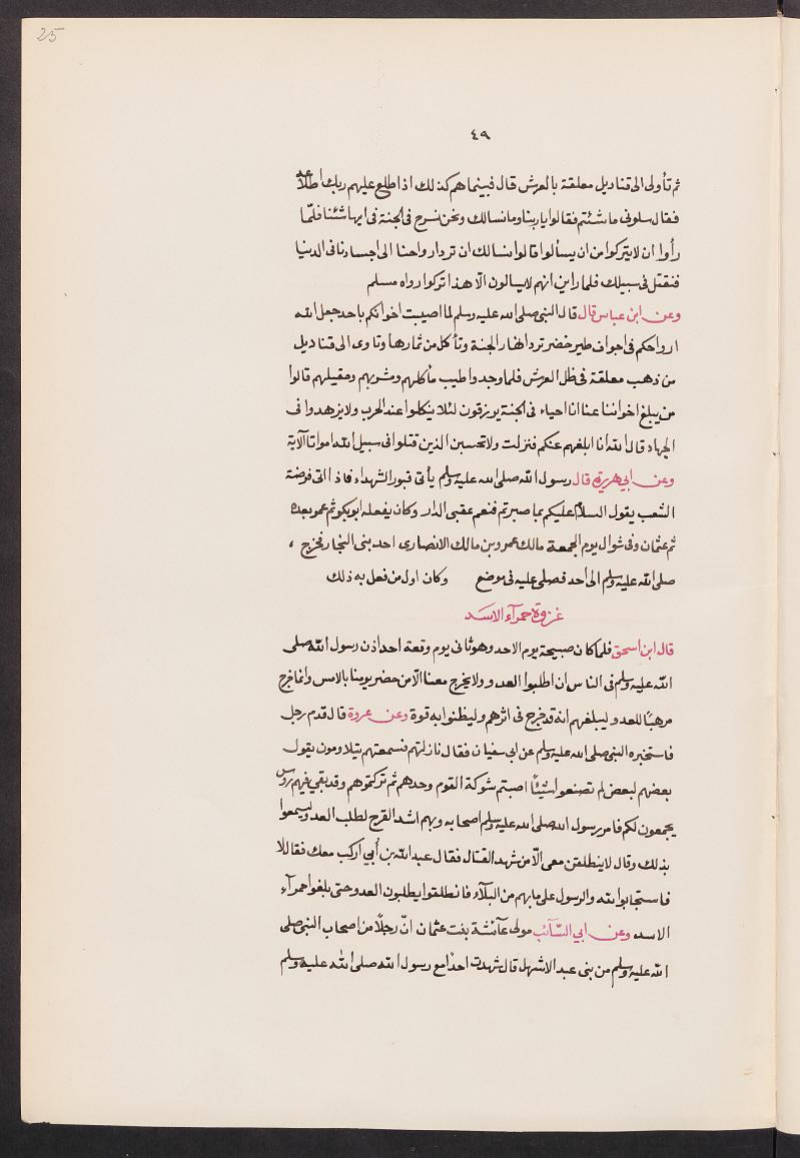 25
٤٩
ثم تأولى الى قناديل معلقة بالعرش قال فبينماهم كذلك اذا طلع عليهم ربك اطلاعه
فقال سلونى ما شئتم فقالوا يا ربنا وما نسالك ونحن نسرح فى الجنة فى ايها شئنا فلمّا
رأوا ان لايتركوا من ان يسألوا قالوا نسالك ان ترد ارواحنا الى اجسادنا فى الدنيا
فنقتل فى سبيلك فلما راى انهم لايسالون الّا هذا تركوا رواه مسلم
وعن ابن عباس قال قال النبى صلى الله عليه وسلم لما اصيبت اخوانكم باحد جعل الله
ارواحكم فى اجواف طير خضر ترد انهار الجنة وتأكل من ثمارها وتاوى الى قناديل
من ذهب معلقة فى ظل العرش فلما وجدوا طيب مأكلهم ومشربهم ومقيلهم قالوا
من يبلغ اخواننا عنا انا احياء فى الجنة يرزقون لئلا ينكلوا عند الحرب ولا يزهدوا فى
الجهاد قال الله انا ابلغهم عنكم فنزلت ولا تحسبن الذين قتلوا فى سبيل الله امواتا الآية
وعن ابى هريرة قال رسول الله صلى الله عليه وسلم يأتى قبور الشهداء فاذا اتى فرضة
الشعب يقول السلام عليكم بما صبرتم فنعم عقبى الدار وكان يفعله ابوبكر ثم عمر بعده
ثم عثمان وفى شوال يوم الجمعة مالك عمرو بن مالك الانصارى احد بنى النجار فخرج ،
صلى الله عليه وسلم الى احد فصلى عليه فى موضع وكان اول من فعل به ذلك
غزوة حمرآء الاسد
قال ابن اسحق فلما كان صبيحة يوم الاحد وهو ثانى يوم وقعة احد اذن رسول الله صلى
الله عليه وسلم فى الناس ان اطلبوا العدو ولا يخرج معنا الّا من حضر يومنا بالامس وانما خرج
مرهبًا للعدو ليبلغهم انه قد خرج فى اثرهم وليظنوا به قوة وعن عروة قال قدم رجل
فاستخبره النبى صلى الله عليه وسلم عن ابى سفيان فقال نازلتهم فسمعتهم يتلاومون يقول
بعضهم لبعض لم تصنعوا شيئًا اصبتم شوكة القوم وحدهم ثم تركتموهم وقد بقى فيهم رؤس
يجمعون لكم فامر رسول الله صلى الله عليه وسلم اصحابه وبهم اشد القرح لطلب العدو ليسمعوا
بذلك وقال لاينطلقن معى الّا من شهد القتال فقال عبد الله بن أبي اركب معك فقال لا
فاستجابوا لله والرسول على ما بهم من البلآء فانطلقوا يطلبون العدو حتى بلغوا حمرآء
الاسد وعن ابي السّآئب مولى عآئشة بنت عثمان انّ رجلًا من اصحاب النبى صلى
الله عليه وسلم من بنى عبد الاشهل قال شهدت احدًا مع رسول الله صلى الله عليه وسلم